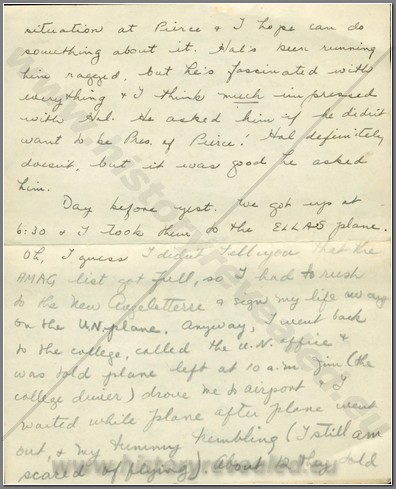 situation at Pierce & I hope can do
something about it. Hal's been running
him ragged, but he's fascinated with
everything & I think much impressed
with Hal. He asked him if he didn't
want to be Pres. of Pierce! Hal definitely
doesn't, but it was good he asked
him.
Day before yest. we got up at
6:30 & I took them to the ELLAS plane.
Oh, I guess I didn't tell you that the
AMAG list got full, so I had to rush
to the New Angleterre & sign my life away
on the U.N. plane. Anyway, I went back
to the college, called the U.N. office &
was told plane left at 10 a.m. Jim (the
college driver) drove me to airport & I
waited while plane after plane went
out, & my tummy trembling (I still am
scared of flying). About 12 they told